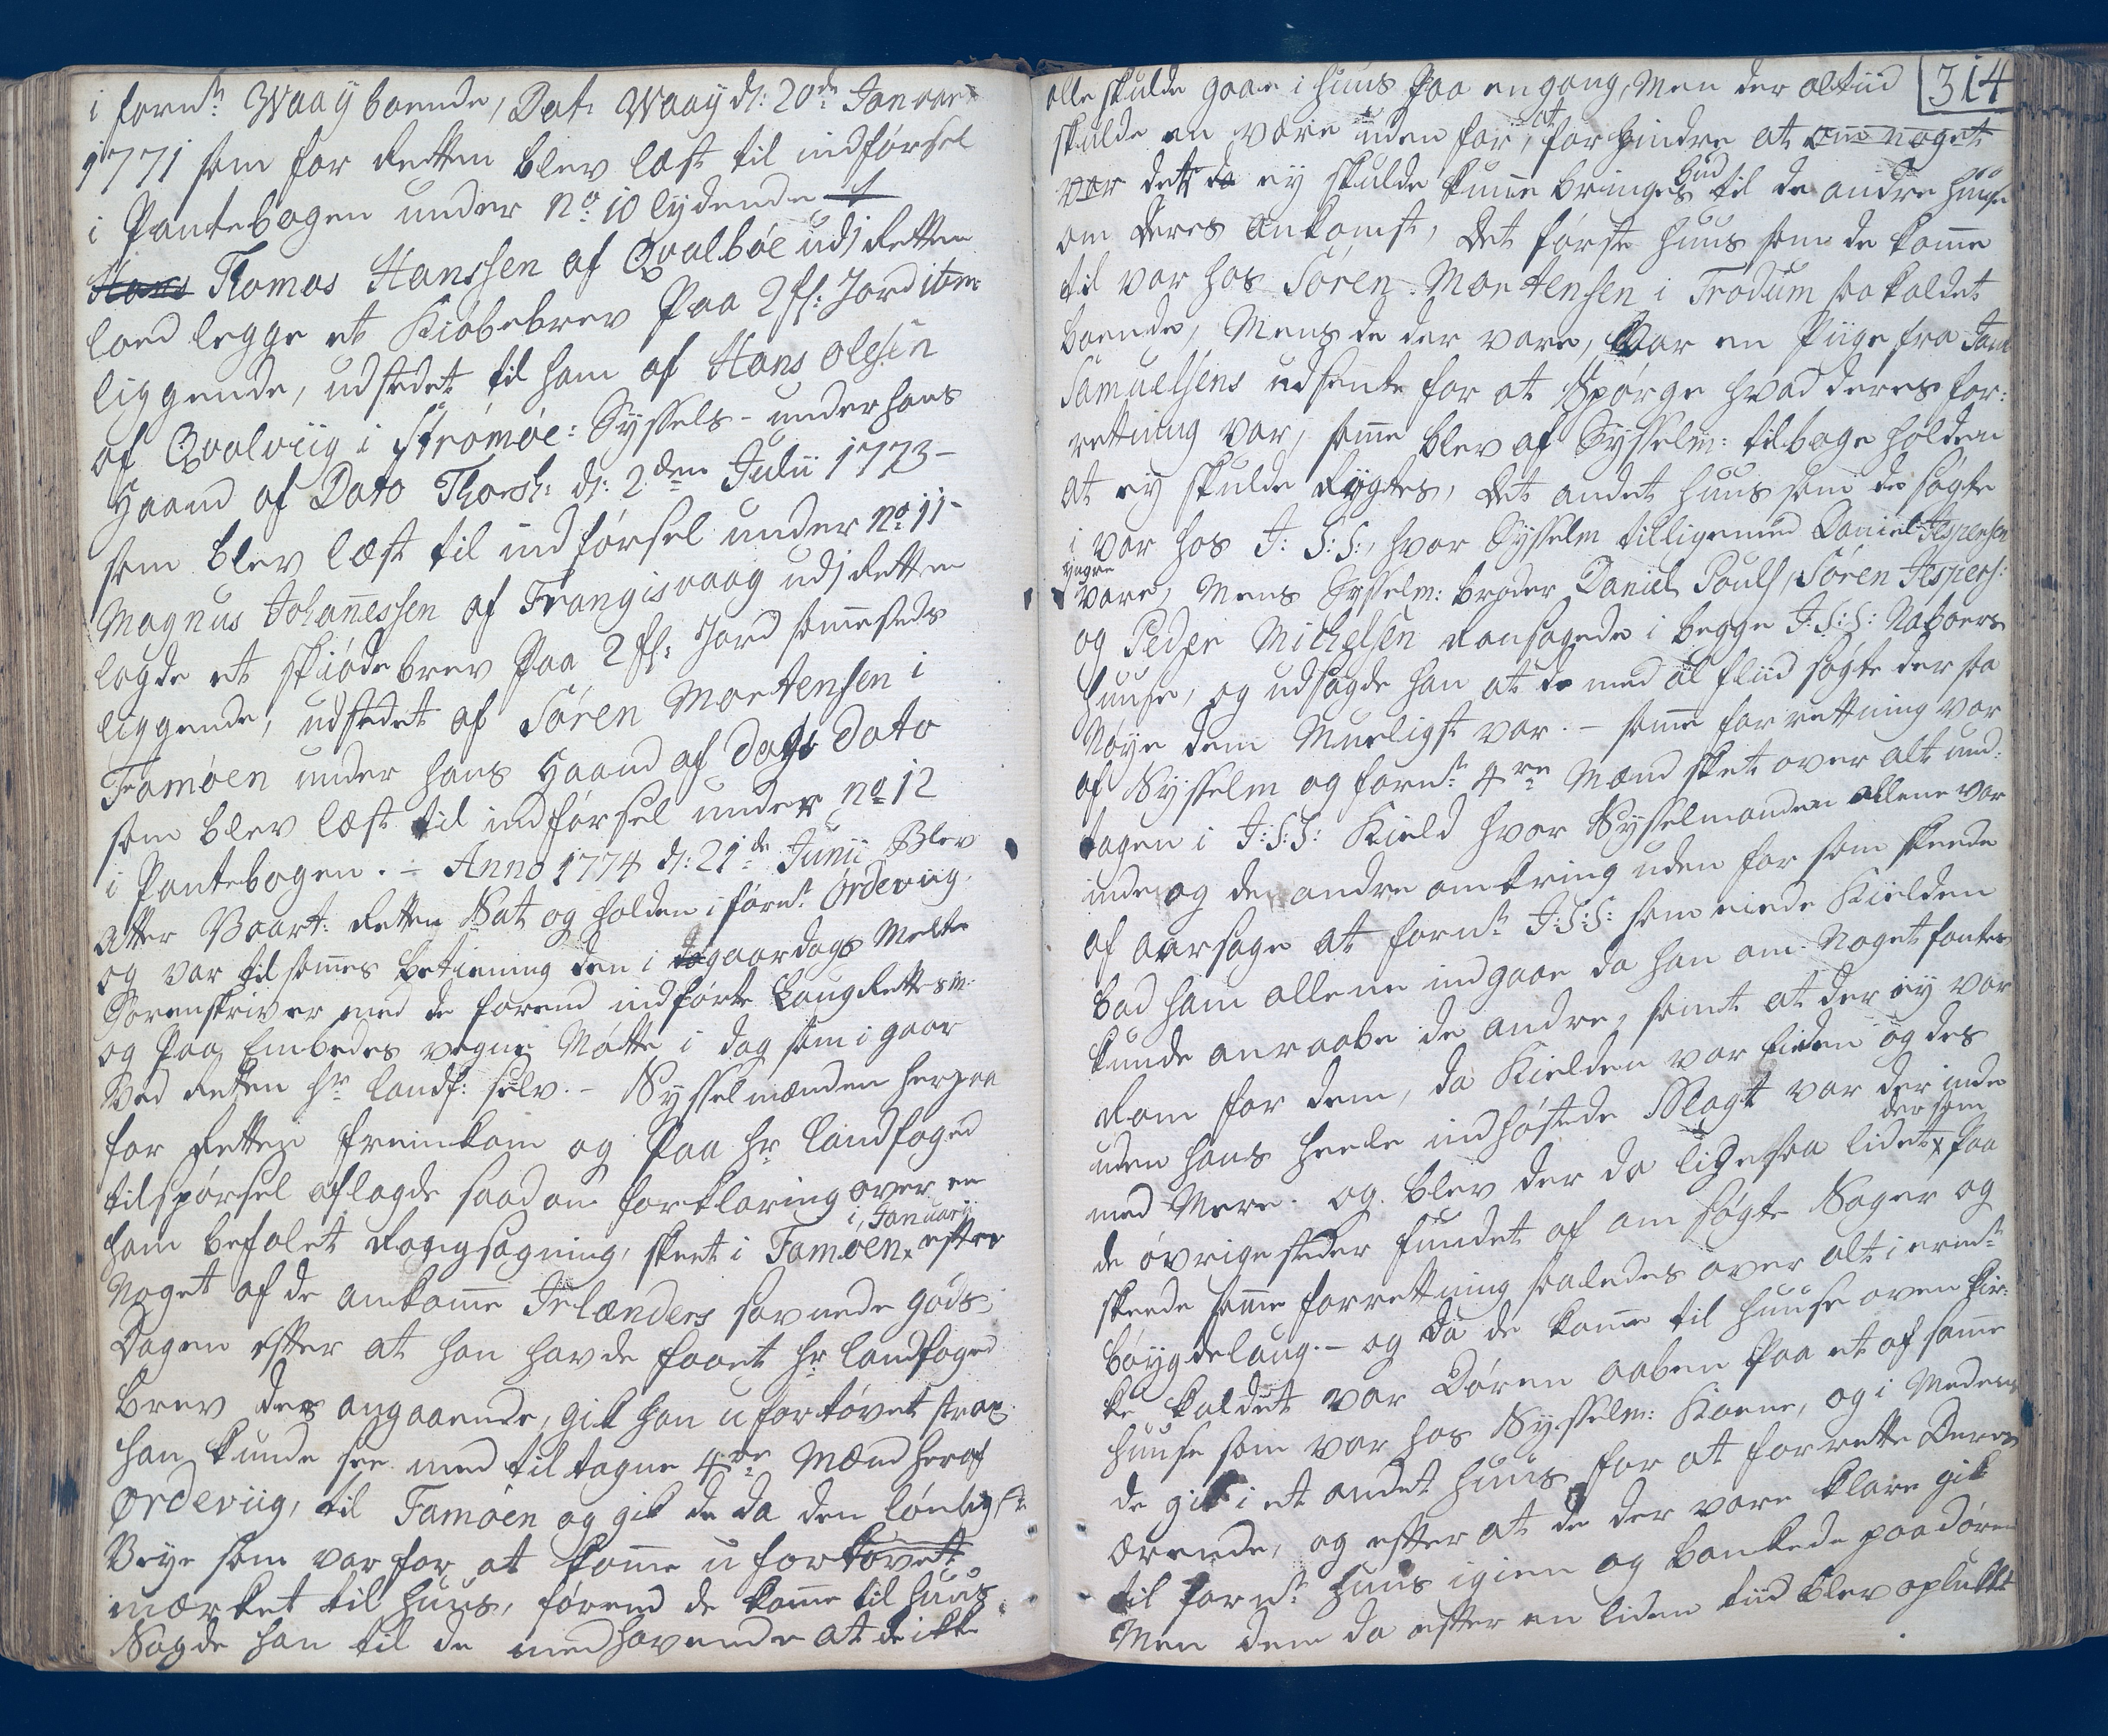 i fornt: Waaÿ boende, Dat: Waaÿ d: 20de Januar
1771 som for Retten blev læst til indførsel
i Pantebogen under No: 10 lydende
Hans Thomas Hanssen af Qvalbøe udj Retten
loed legge et Kiøbebrev paa 2 fl: Jord item
liggende, udstedet til ham af Hans Olesen
af Qvalviig i Strømøe: Syssels- under hans
Haand af Dato Thorsh: d: 2den Julii 1773-
som blev læst til indførsel under No: 11-
Magnus Johanessen af Frangisvaag udj Retten
lagde et skiødebrev paa 2 fl: Jord sammesteds
liggende, udstedet af Søren Mortensen i
Famøen under hans Haand af Dags Dato
som blev læst til indførsel under No 12
i Pantebogen. - Anno 1774 d: 21de Junii Blev
Atter Vaart: Retten Sat og holden i fornt: Ørdeviig,
og var til sammes betiening den i dagaardags Melte
Sorenskriver med de forend indførte Laug Rettesm:
og paa Embedes vegne Møtte i dag som i gaar
Ved Retten hr Landf: selv. - Sysselmanden herpaa
for Retten fremkom og paa hr Landfoged
tilspørsel aflagde saadan forklaring over en
ham befalet Rangsagning, skeet i Famøen i Januarii efter
Noget af de ankomne Irlænders savnede gods,
Dagen efter at han havde faaet hr Landfoged
brev der angaaende, gik han ufortøvet strax
han kunde see med til tagne 4re Mænd her af
Ørdeviig, til Famøen og gik de da den lønligste
Veye som var for at komme ufortøvet
mærket til huus, førend de komme til huus
Sagde han til de medhavende at de ikke
314
alle skulde gaae i huus paa en gang, Men der altiid
skulde en være uden for, at forhindre at om noget
var dett da ey skulde kunne bringes bud til de andre huuse
om deres ankomst, det første huus som de komme
til var hos Søren Mortensen i Trodum saa kaldet
boende, Mens de der vare, Var en Piige fra Jac
Samuelsens udsente for at Spørge hvad deres for:
rettning var, samme blev af Sysselm: tilbage holden
at ey skulde Rygtes, det andet huus som de søgte
i var hos J: S: S:, hvor Sysselm tilligemed Daniel Jespersen
yngre vare, Mens Sysselm: broder Daniel Pouls, Søren Jespers:
og Peder Michelsen Ransagede i begge J: S: S: Naboers
huuse, og udsagde han at de med al fliid søgte der saa
Nøye dem Mueligt var. - samme forrettning var
af Sysselm og fornt: 4re Mænd skeet over alt und:
tagen i J: S: S: Kield hvor Sysselmanden allene var
inde og de andre omkring uden for som skeede
af aarsage at fornt: J: S: S: som eiede Kielden
bad ham allene indgaae da han om Noget fantes
kunde anraabe de andre, samt at der ey var
Rom for dem, da Kielden var liden og des
uden hans heele indhøstede Slagt var der inde
med Mere. og blev der da ligesaa lidet der som paa
de øvrige steder fundet af om søgte Sager og
skeede samme forrettning saaledes over alt i ermt:
bøygdelaug. - og da de komme til huuse oven kir:
ke kaldet var Døren aaben paa et af samme
huuse som var hos Sysselm: Kone, og i Medens
de gik i et andet huus for at forrette Deres
ærende, og efter at de der vare klare gik
til fornt: huus igien og bankede paa døren
Men dem da efter en liden tiid blev oplukt